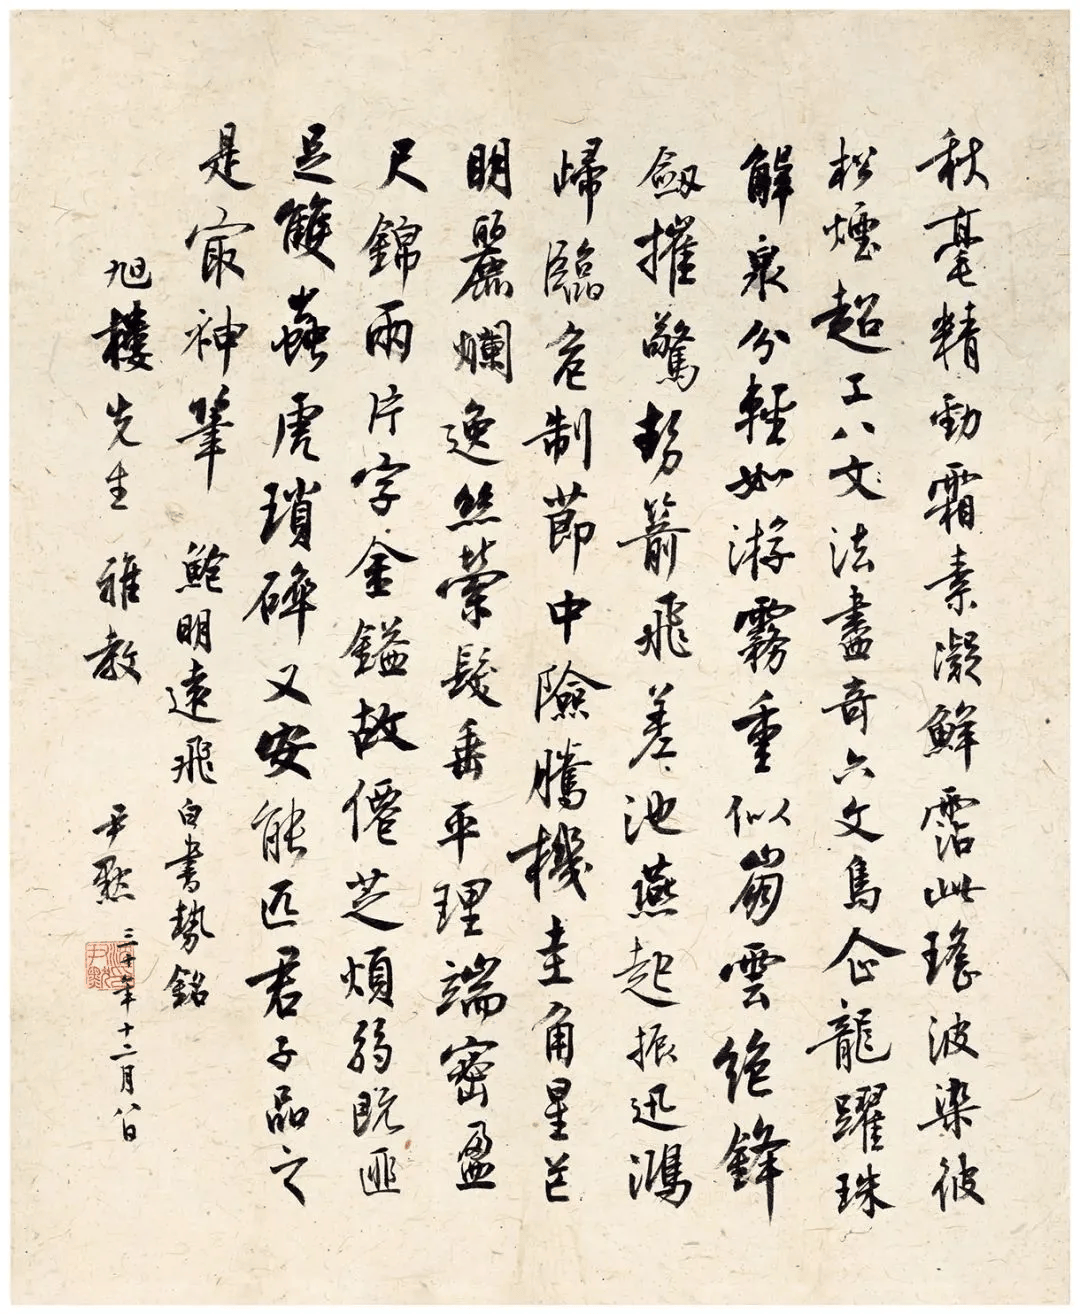 秋毫精勁霜素凝鮮霑此瑤波染彼
松煙超工八文法盡奇六文鳥企龍躍珠
解泉分輕如游霧重似崩雲絕鋒
劔摧驚勢箭飛差池燕起振迅鴻
歸臨危制節中險騰機圭角星芒
明麗爛逸絲縈髮垂平理端密盈
尺錦兩片字金鎰故僊芝煩弱既匪
足雙蟲虎瑣碎又安能匹君子品之
是㝡神筆 鮑明遠飛白書勢銘
旭樓先生雅教 尹默 三十年十二月八日
沈尹默